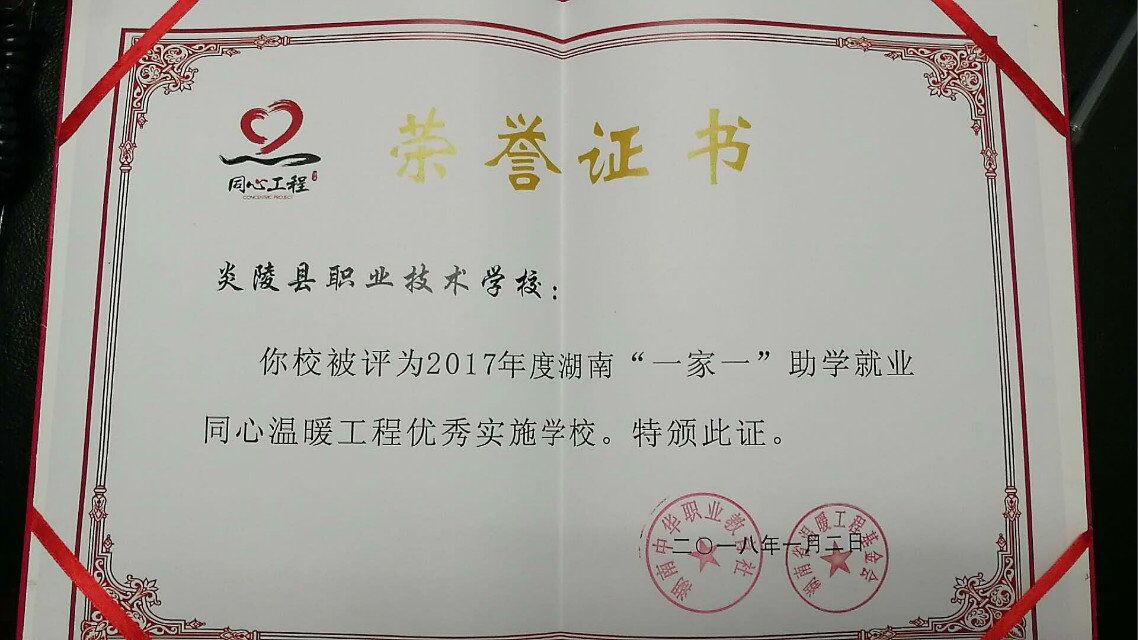 同心工程
CONCENTRIC PROJECT
荣誉证书
炎陵县职业技术学校：
你校被评为2017年度湖南“一家一”助学就业
同心温暖工程优秀实施学校。特颁此证。
湖南中华职业教育社
湖南省温暖工程基金会
二〇一八年一月二日